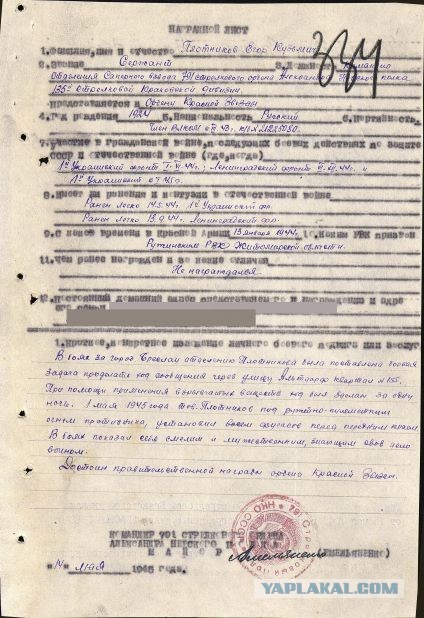 НАГРАДНОЙ ЛИСТ
1. Фамилия, имя и отчество Плотников Егор Кузьмич
2. Звание Сержант 3. Должность Командир
отделения Саперного взвода 791 стрелкового ордена Александра Невского полка
135 Стрелковой Краковской дивизии.
представляется к Ордену Красной Звезды
4. Год рождения 1924 5. Национальность Русский 6. Партийность
Член ВЛКСМ с 43
7. Участие в гражданской войне, последующих боевых действиях по защите
СССР и отечественной войне (где, когда)
1й Украинский фронт 44г; Ленинградский фронт 44г. и
1й Украинский с 45г.
8. Имеет ли ранения и контузии в отечественной войне
Ранен легко 14.5.44г, 1й Украинский фр.
Ранен легко 13.9.44г. Ленинградский фр.
9. С какого времени в Красной Армии 13 января 1944г. 10. Каким РВК призван
РВК Житомирской области.
11. Чем ранее награжден и за какие отличия
Не награждался
12. Постоянный домашний адрес представляемого к награждению и адрес
его семьи
1. Краткое, конкретное изложение личного боевого подвига или заслуг
В боях за город Бреслау отделению Плотникова была поставлена боевая
задача проделать ход сообщения через улицу квартал №155.
При помощи применения взрывчатых веществ ход был сделан за одну
ночь. 1 мая 1945 года тов. Плотников под ружейно-пулеметным
огнем противника, установил перед передним краем.
В боях показал себя смелым и мужественным, знающим свое дело
воином.
Достоин правительственной награды орден Красной Звезды.
КОМАНДИР 791 СТРЕЛКОВОГО ОРДЕНА
АЛЕКСАНДРА НЕВСКОГО ПОЛКА
МАЙОР (ЕМЕЛЬЯНЕНКО)
"14" мая 1945 года.
YAPLAKAL.COM